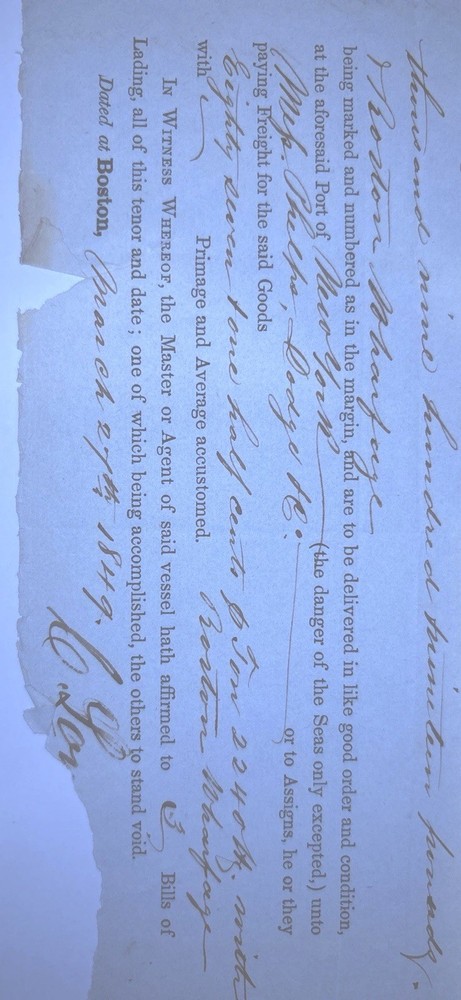 thousand nine hundred nineteen pounds.
Boston Wharfage
being marked and numbered as in the margin, and are to be delivered in like good order and condition,
at the aforesaid Port of New York (the danger of the Seas only excepted,) unto
Mess. Phelps, Dodge & Co. or to Assigns, he or they
paying Freight for the said Goods
Eighty seven & one half cents ⅌ Ton 2240 lbs. with
with Primage and Average accustomed. Boston Wharfage
IN WITNESS WHEREOF, the Master or Agent of said vessel hath affirmed to 3 Bills of
Lading, all of this tenor and date; one of which being accomplished, the others to stand void.
Dated at Boston, March 27th 1849.